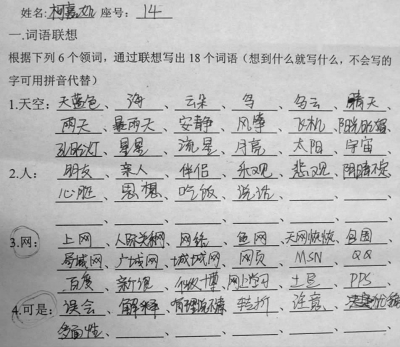 姓名: 柯嘉 座号: 14
一.词语联想
根据下列6个领词，通过联想写出18个词语（想到什么就写什么，不会写的
字可用拼音代替）
1.天空: 天蓝色、海、云朵、鸟、乌云、晴天、
雨天、暴雨天、安静、风筝、飞机、
孔明灯、星星、流星、月亮、太阳、宇宙
2.人: 朋友、亲人、伴侣、乐观、悲观、阴晴不定
心脏、思想、吃饭、说话、
3.网: 上网、人际关系网、网络、鱼网、天网恢恢、包围
局域网、广域网、城域网、网页、MSN、QQ
百度、新浪、网上学习、土星、PPS
4.可是: 误会、解释、有理说不清、转折、注意、
多面性、